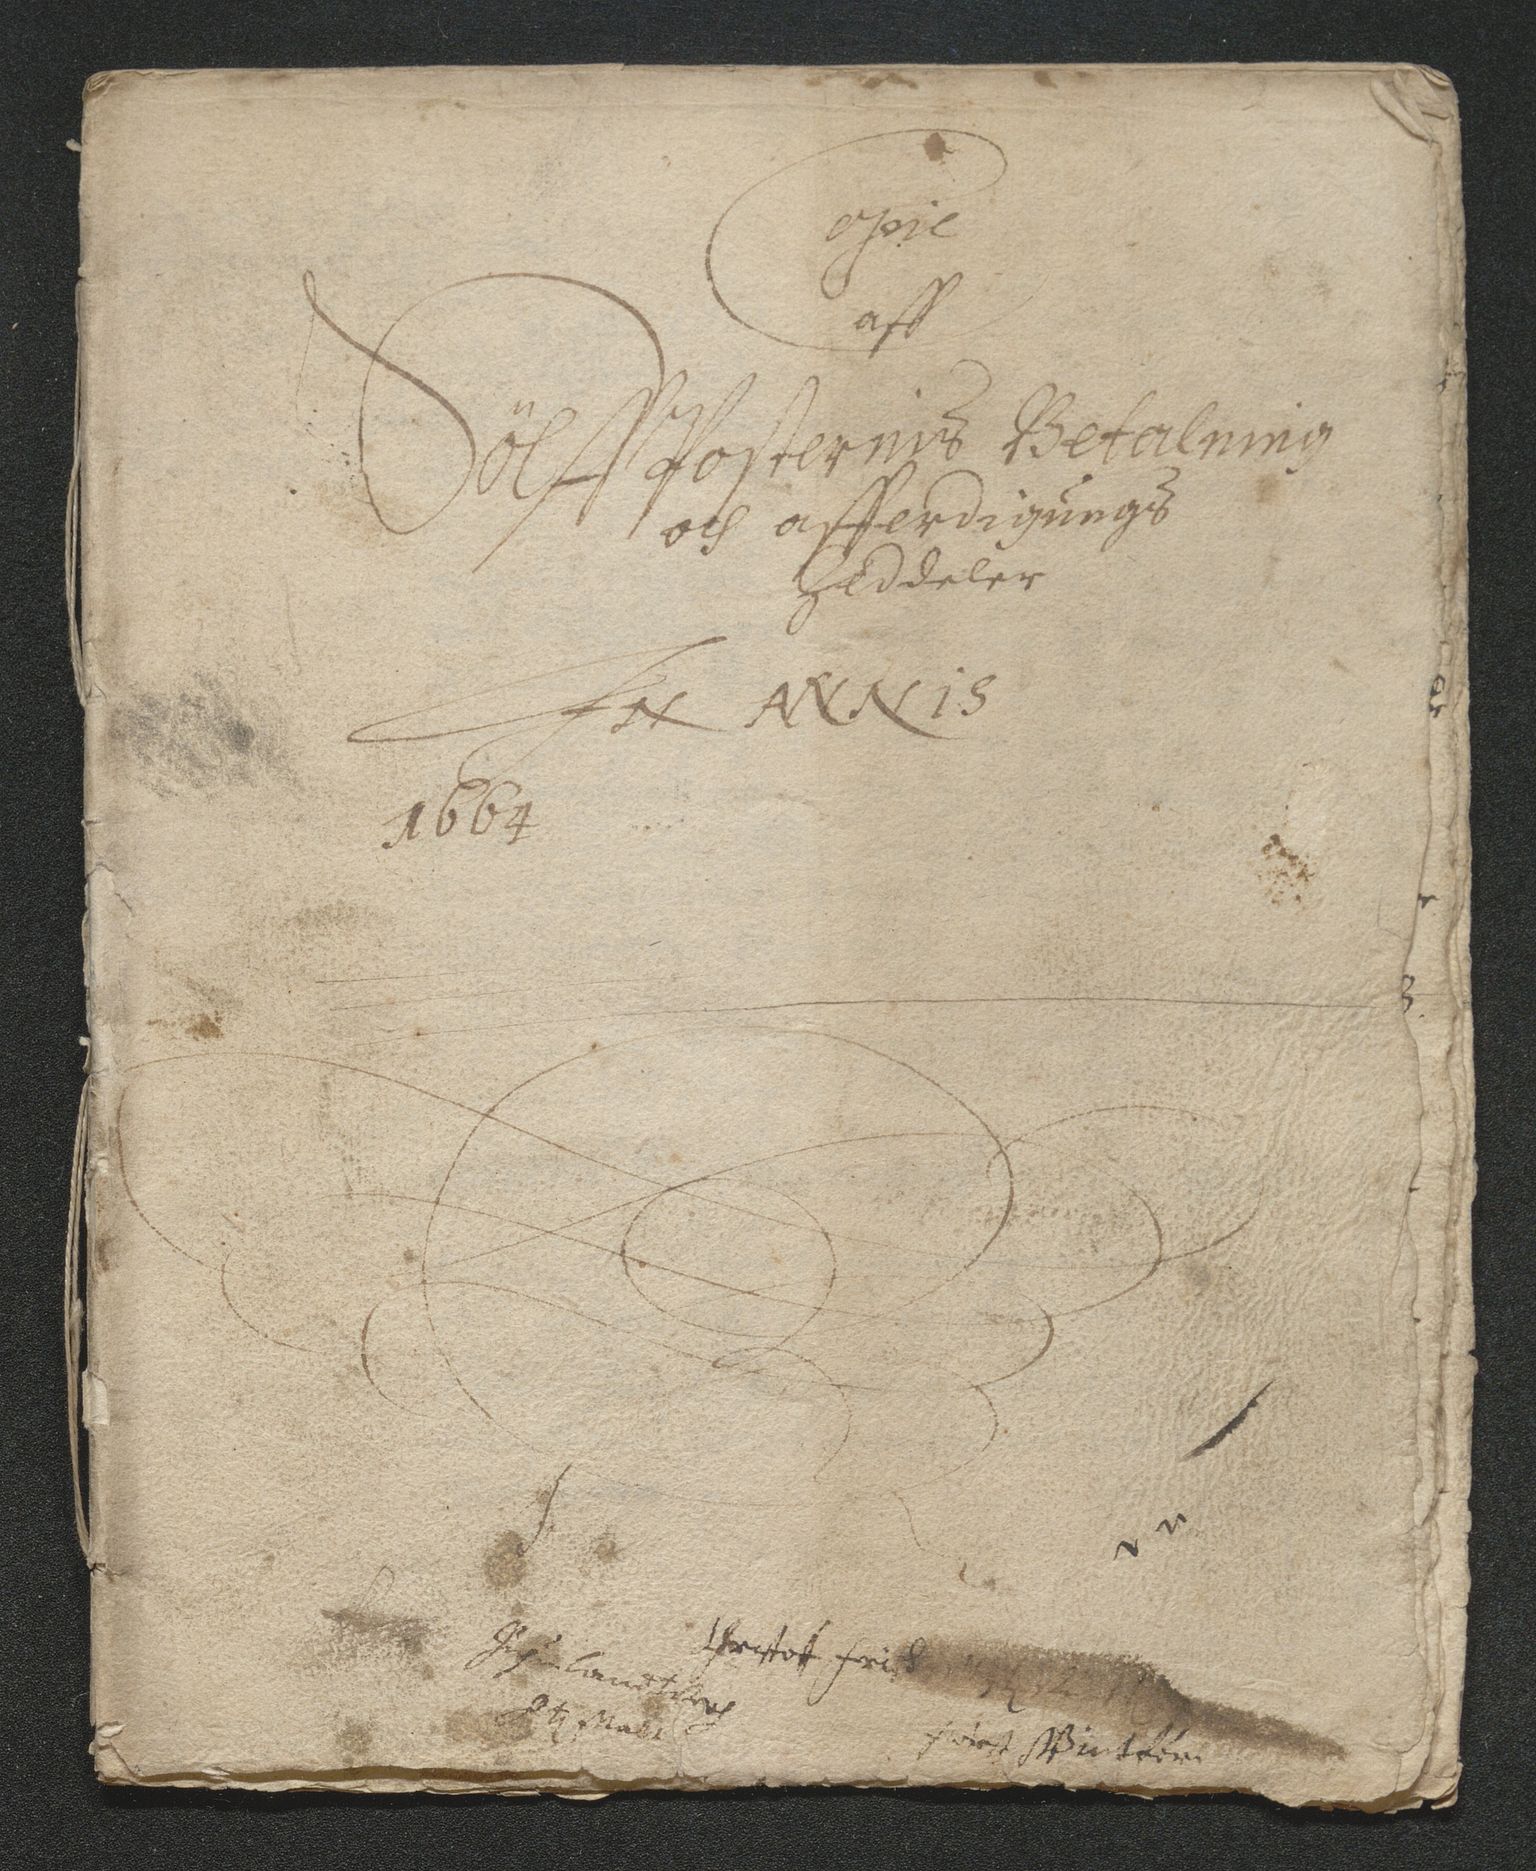 Copie
aff
Sölff Posternis Betalning
och afferdigungs
Zeddeler
IN ANNIS
1664
Christoff
Wintter